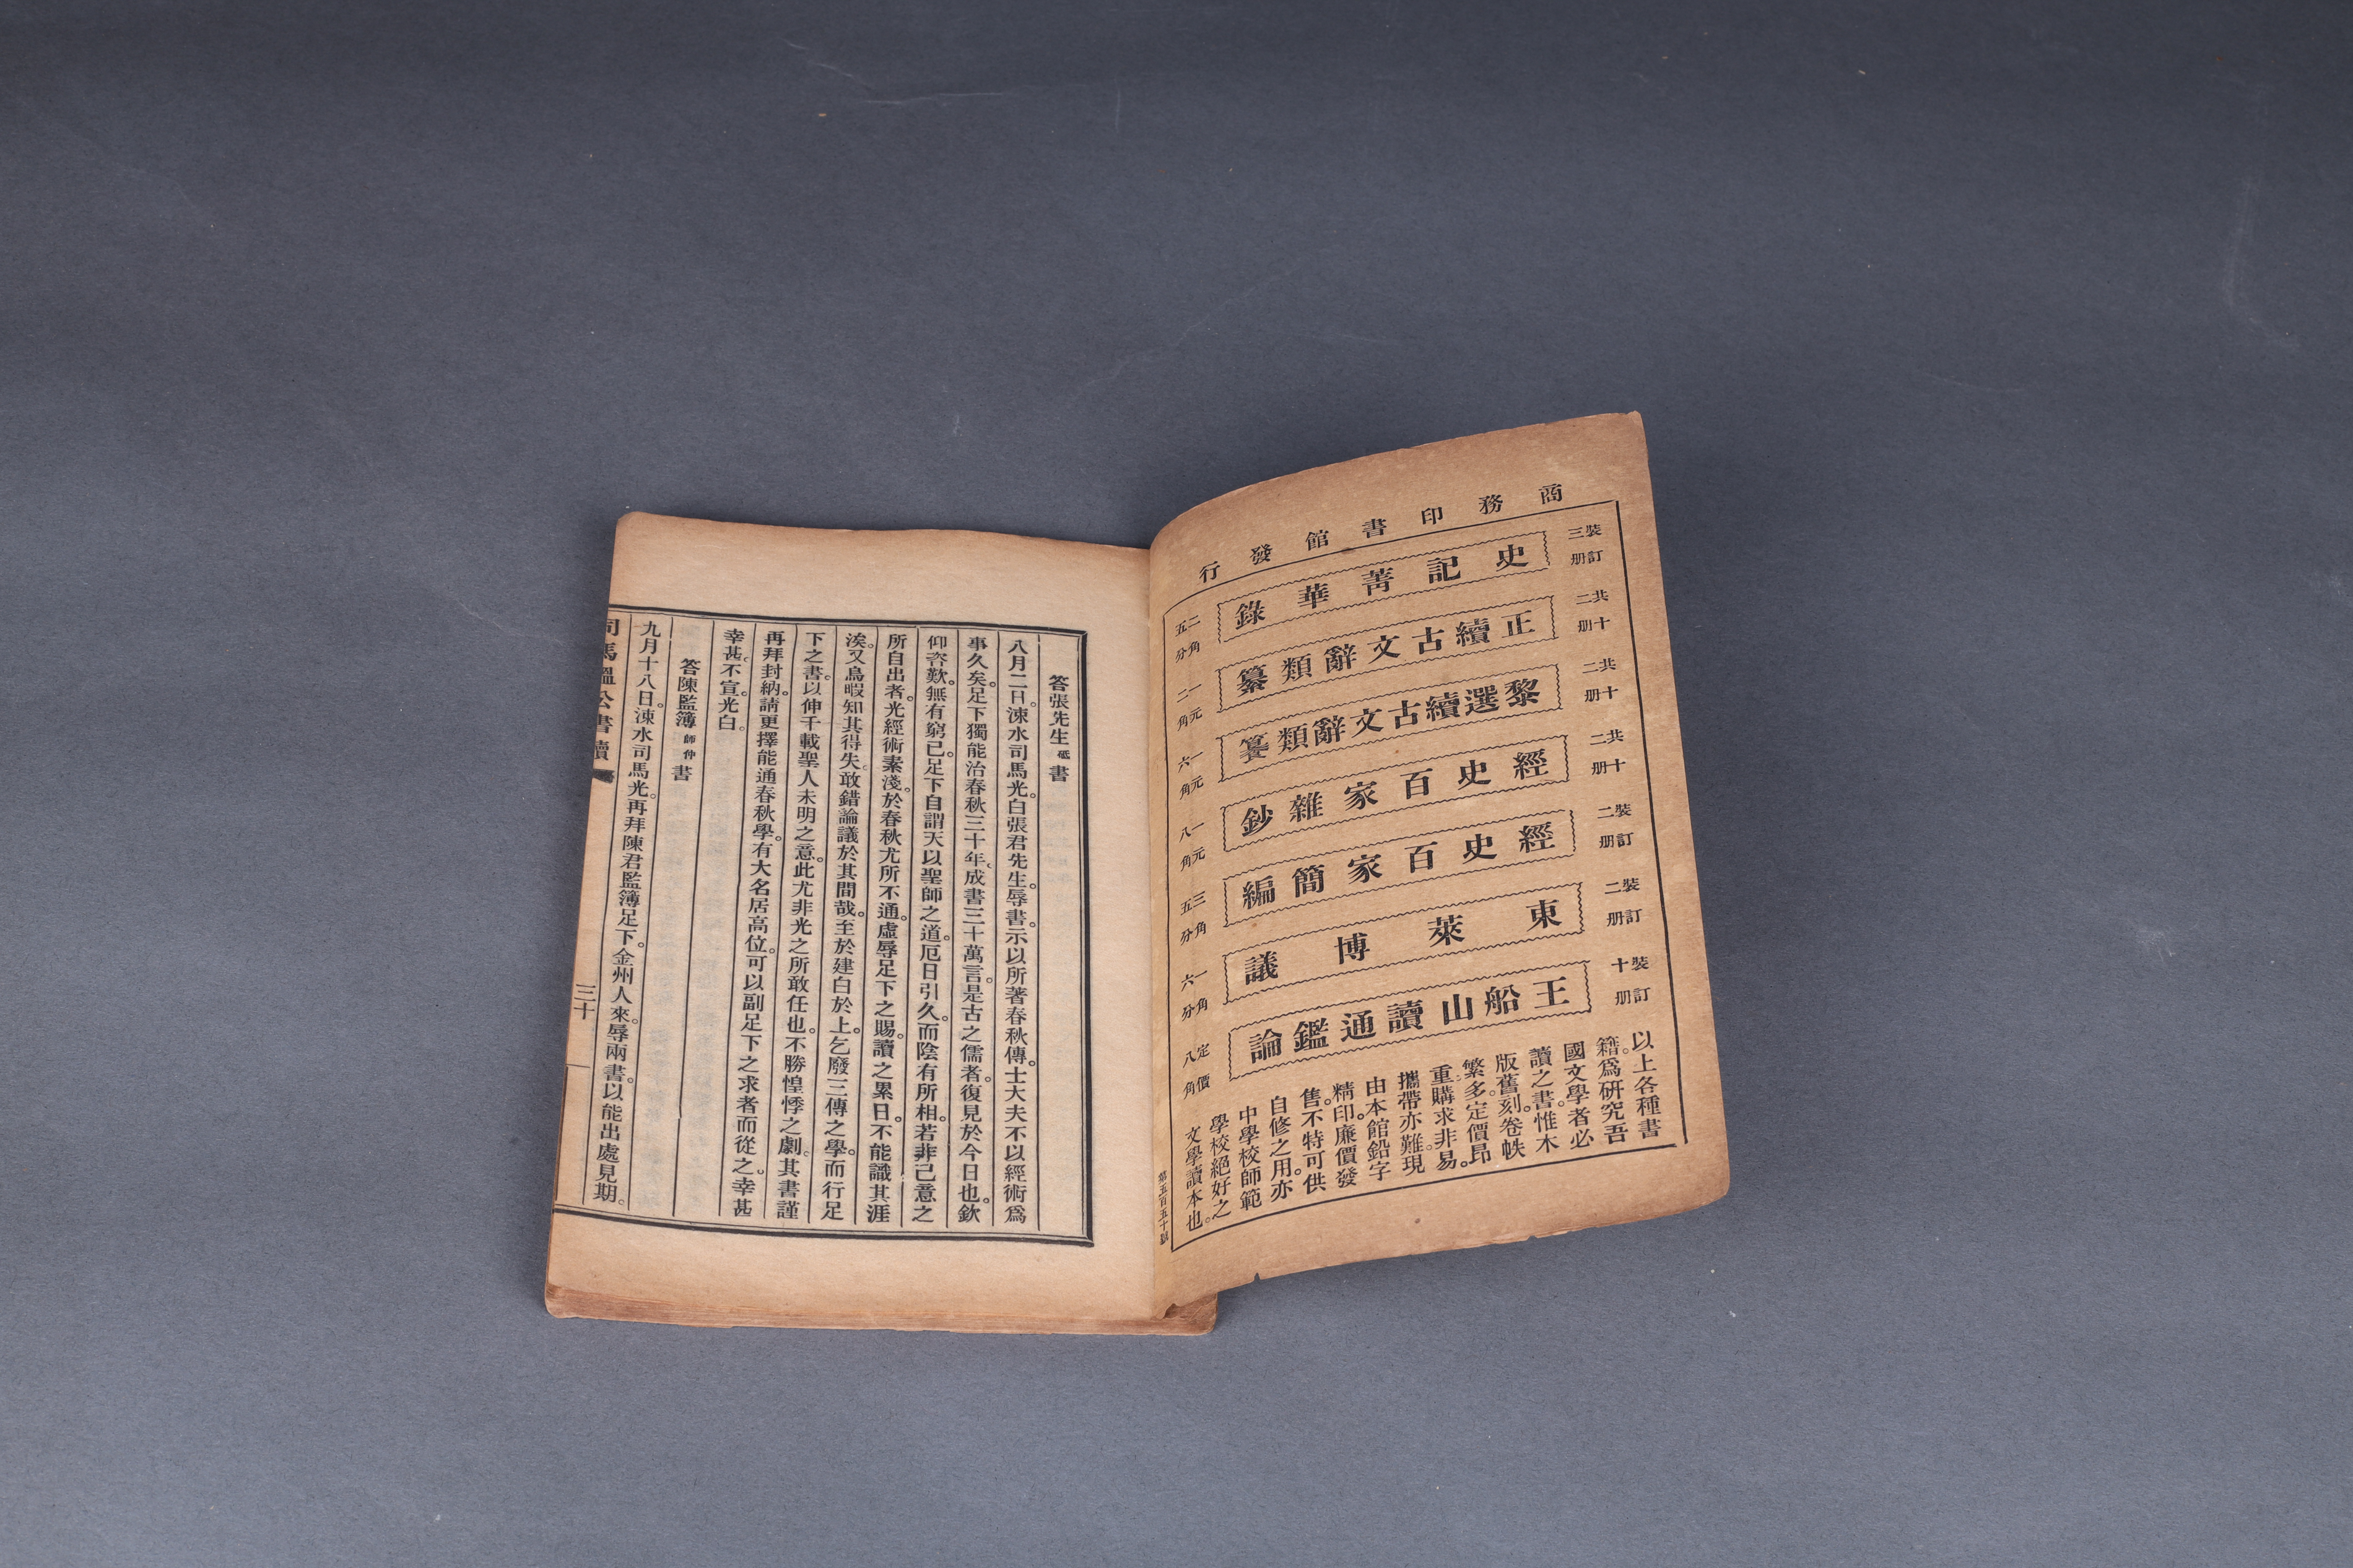 商務印書館發行
裝訂三册
史記菁華錄
二角五分
共二十册
正續古文辭類纂
一元二角
共二十册
黎選續古文辭類纂
一元六角
共二十册
經史百家雜鈔
一元八角
裝訂二册
經史百家簡編
三角五分
裝訂二册
東萊博議
一角六分
裝訂十册
王船山讀通鑑論
定價八角
以上各種書
籍。爲研究吾
國文學者必
讀之書。惟木
版舊刻。卷帙
繁多。定價昂
重。購求非易。
攜帶亦難。現
由本館鉛字
精印。廉價發
售。不特可供
自修之用。亦
中學校師範
學校絕好之
文學讀本也。
第五百五十號
答張先生砥書
八月二日。涑水司馬光。白張君先生。辱書。示以所著春秋傳。士大夫不以經術爲
事久矣。足下獨能治春秋三十年。成書三十萬言。是古之儒者。復見於今日也。欽
仰咨歎。無有窮已。足下自謂天以聖師之道。厄日引久。而陰有所相。若非己意之
所自出者。光經術素淺。於春秋尤所不通。虛辱足下之賜。讀之累日。不能識其涯
涘。又烏暇知其得失。敢錯論議於其間哉。至於建白於上。乞廢三傳之學。而行足
下之書。以伸千載聖人未明之意。此尤非光之所敢任也。不勝惶悸之劇。其書謹
再拜封納。請更擇能通春秋學。有大名居高位。可以副足下之求者而從之。幸甚
幸甚。不宣。光白。
答陳監簿師仲書
九月十八日。涑水司馬光。再拜陳君監簿足下。金州人來。辱兩書。以能出處見期。
司馬溫公書牘
三十